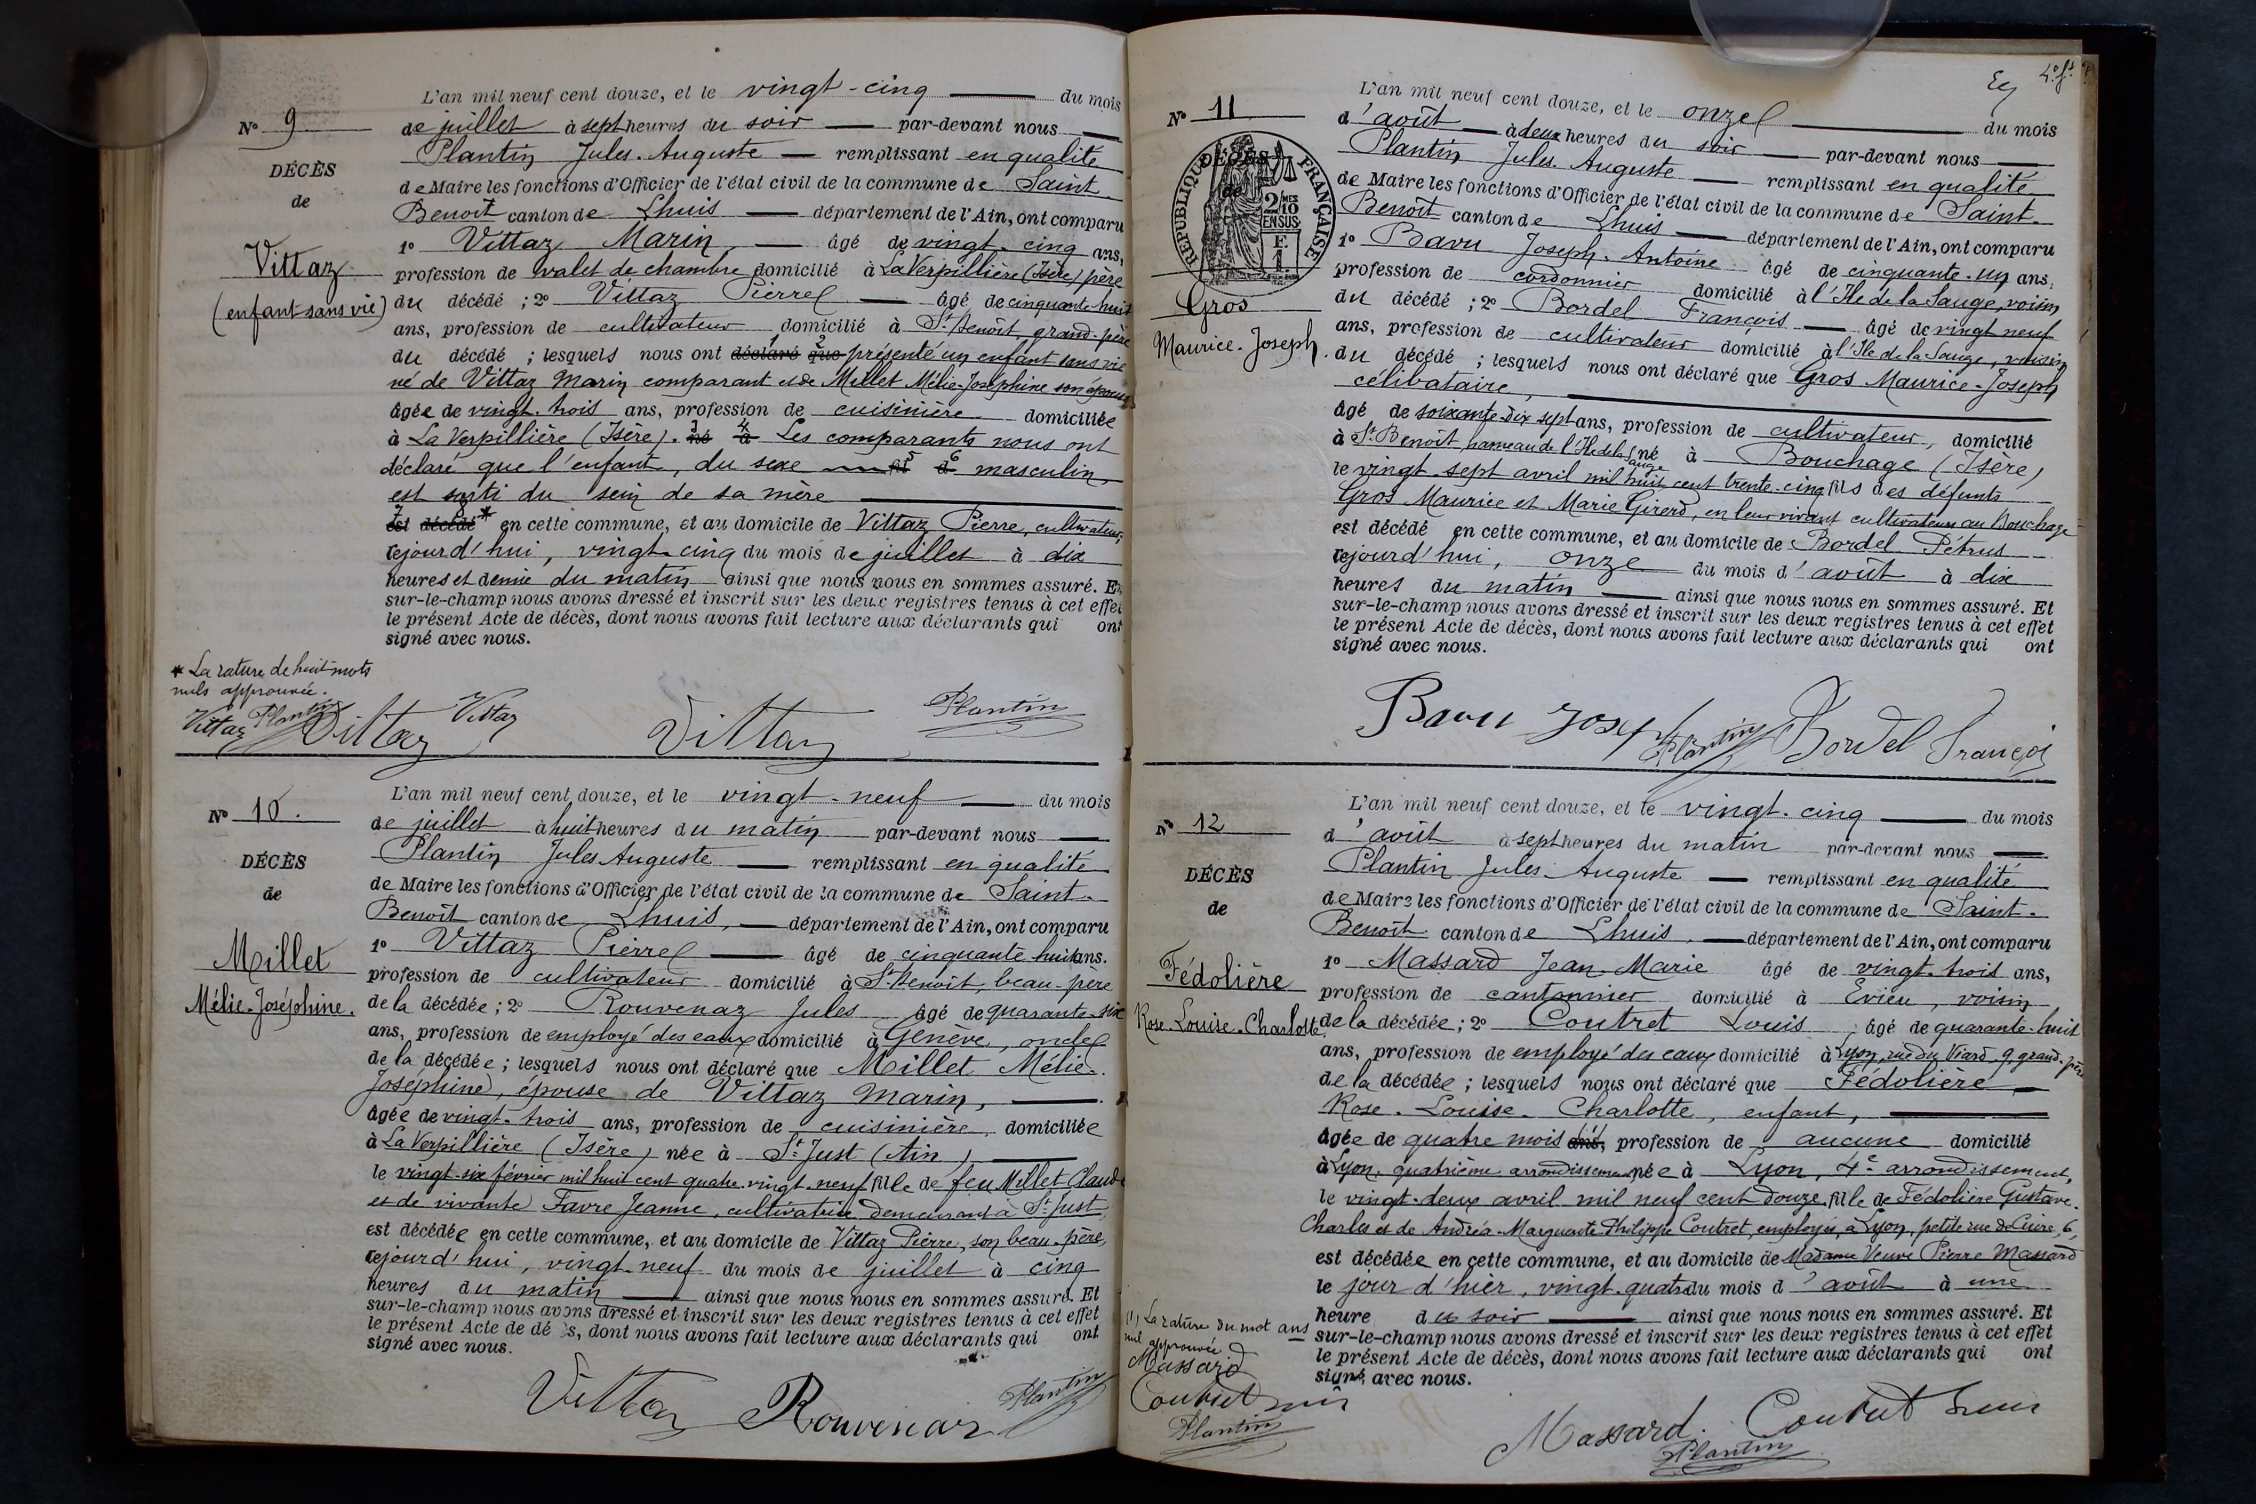 L'an mil neuf cent douze, et le vingt-cinq du mois
N° 9
de juillet à sept heures du soir par-devant nous
Plantin Jules-Auguste remplissant en qualité
DÉCÈS
de Maire les fonctions d'Officier de l'état civil de la commune de Saint
de
Benoît canton de Lhuis département de l'Ain, ont comparu
1° Vittaz Marin, âgé de vingt-cinq ans,
Vittaz
profession de valet de chambre domicilié à La Verpillière (Isère) père
(enfant sans vie)
du décédé ; 2° Vittaz Pierre âgé de cinquante huit
ans, profession de cultivateur domicilié à St Benoît, grand-père
du décédé ; lesquels nous ont déclaré 1 que 2 présenté un enfant sans vie
né de Vittaz Marin comparant et de Millet Mélie-Joséphine son épouse
âgée de vingt-trois ans, profession de cuisinière domiciliée
à La Verpillière (Isère). né 3 à 4 Les comparants nous ont
déclaré que l'enfant, du sexe fil 5 d 6 masculin,
est sorti du sein de sa mère
est 7 décédé 8 * en cette commune, et au domicile de Vittaz Pierre, cultivateur,
cejourd'hui, vingt-cinq du mois de juillet à dix
heures et demie du matin ainsi que nous nous en sommes assuré. Et
sur-le-champ nous avons dressé et inscrit sur les deux registres tenus à cet effet
le présent Acte de décès, dont nous avons fait lecture aux déclarants qui ont
signé avec nous.
* La rature de huit mots
nuls approuvée.
Vittaz Plantin Vittaz Vittaz Vittaz Plantin
L'an mil neuf cent douze, et le vingt-neuf du mois
N° 10.
de juillet à huit heures du matin par-devant nous
Plantin Jules Auguste remplissant en qualité
DÉCÈS
de Maire les fonctions d'Officier de l'état civil de la commune de Saint-
de
Benoît canton de Lhuis, département de l'Ain, ont comparu
1° Vittaz Pierre âgé de cinquante huit ans.
Millet
profession de cultivateur domicilié à St Benoît, beau-père
Mélie-Joséphine.
de la décédée ; 2° Rouvenaz Jules âgé de quarante-six
ans, profession de employé des eaux domicilié à Genève, oncle
de la décédée ; lesquels nous ont déclaré que Millet Mélie-
Joséphine, épouse de Vittaz Marin,
âgée de vingt-trois ans, profession de cuisinière domiciliée
à La Verpillière (Isère) née à St Just (Ain)
le vingt-six février mil huit cent quatre-vingt-neuf fille de feu Millet Claude
et de vivante Favre Jeanne, cultivatrice demeurant à St Just,
est décédée en cette commune, et au domicile de Vittaz Pierre, son beau-père,
cejourd'hui, vingt-neuf du mois de juillet à cinq
heures du matin ainsi que nous nous en sommes assuré. Et
sur-le-champ nous avons dressé et inscrit sur les deux registres tenus à cet effet
le présent Acte de décès, dont nous avons fait lecture aux déclarants qui ont
signé avec nous.
Vittaz Rouvenaz Plantin
L'an mil neuf cent douze, et le onze du mois
N° 11
d'août à deux heures du soir par-devant nous
Plantin Jules-Auguste remplissant en qualité
DÉCÈS
de
RÉPUBLIQUE FRANÇAISE
2 MES 10 EN SUS
F. 1.
de Maire les fonctions d'Officier de l'état civil de la commune de Saint-
Benoît canton de Lhuis département de l'Ain, ont comparu
1° Bavu Joseph-Antoine âgé de cinquante-un ans,
profession de cordonnier domicilié à l'Ile de la Sauge, voisin
Gros
du décédé ; 2° Bordel François âgé de vingt neuf
Maurice-Joseph.
ans, profession de cultivateur domicilié à l'Ile de la Sauge, voisin
du décédé ; lesquels nous ont déclaré que Gros Maurice-Joseph
célibataire,
âgé de soixante-dix sept ans, profession de cultivateur, domicilié
à St Benoît, hameau de l'Ile de la Sauge né à Bouchage (Isère)
le vingt sept avril mil huit cent trente-cinq fils des défunts
Gros Maurice et Marie Girerd, en leur vivant cultivateurs au Bouchage
est décédé en cette commune, et au domicile de Bordel Pétrus
cejourd'hui, onze du mois d'août à dix
heures du matin ainsi que nous nous en sommes assuré. Et
sur-le-champ nous avons dressé et inscrit sur les deux registres tenus à cet effet
le présent Acte de décès, dont nous avons fait lecture aux déclarants qui ont
signé avec nous.
Bavu Joseph Plantin Bordel François
L'an mil neuf cent douze, et le vingt-cinq du mois
N° 12
d'août à sept heures du matin par-devant nous
Plantin Jules-Auguste remplissant en qualité
DÉCÈS
de Maire les fonctions d'Officier de l'état civil de la commune de Saint-
de
Benoît canton de Lhuis, département de l'Ain, ont comparu
1° Massard Jean-Marie âgé de vingt-trois ans,
Fédolière
profession de cantonnier domicilié à Evieu, voisin
Rose-Louise-Charlotte
de la décédée ; 2° Coutret Louis, âgé de quarante-huit
ans, profession de employé des eaux domicilié à Lyon, rue du Viard, 9, grand-père
de la décédée ; lesquels nous ont déclaré que Fédolière
Rose-Louise-Charlotte, enfant,
âgée de quatre mois ans, (1) profession de aucune domicilié
à Lyon, quatrième arrondissement née à Lyon, 4e arrondissement,
le vingt-deux avril mil neuf cent douze fille de Fédolière Gustave-
Charles et de Andréa-Marguerite Philippe Coutret, employés, à Lyon, petite rue de Cuire, 6,
est décédée en cette commune, et au domicile de Madame Veuve Pierre Massard
le jour d'hier, vingt-quatre du mois d'août à une
heure du soir ainsi que nous nous en sommes assuré. Et
sur-le-champ nous avons dressé et inscrit sur les deux registres tenus à cet effet
le présent Acte de décès, dont nous avons fait lecture aux déclarants qui ont
signé avec nous.
(1) La rature du mot ans
nul approuvée
Massard
Coutret
Plantin
Massard. Coutret Louis
Plantin